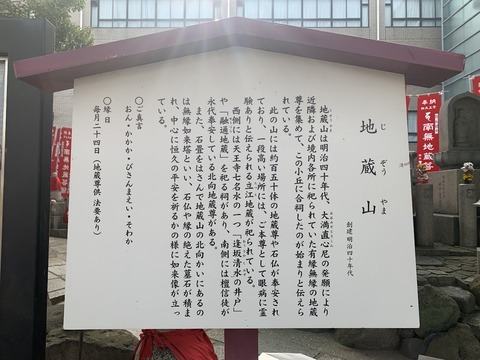 地蔵山
じ ぞう やま
創建明治四十年代
地蔵山は明治四十年代、大満直心尼の発願により
近隣および境内各所に祀られていた有縁無縁の地蔵
尊を集めて、この小丘に合祀したのが始まりと伝えら
れている。
此の山には約百五十体の地蔵尊や石仏が奉安され
ており、一段高い場所には、ご本尊として眼病に霊
験ありと伝えられる立江地蔵が祀られている。
西側には天王寺七名水の一つ「逢坂清水の井戸」
や「融通地蔵」を祀る祠があり、南側には檀信徒が
永代奉安している北向地蔵尊がある。
また、石畳をはさんで地蔵山の北向かいにあるの
は無縁如来塔といい、石仏や縁の絶えた墓石が積ま
れ、中心に恒久の平安を祈るかの様に如来像が立っ
ている。
〇ご真言
おん・かかか・びさんまえい・そわか
〇縁日
毎月二十四日(地蔵尊供 法要あり)
奉納
南無地蔵菩
奉納